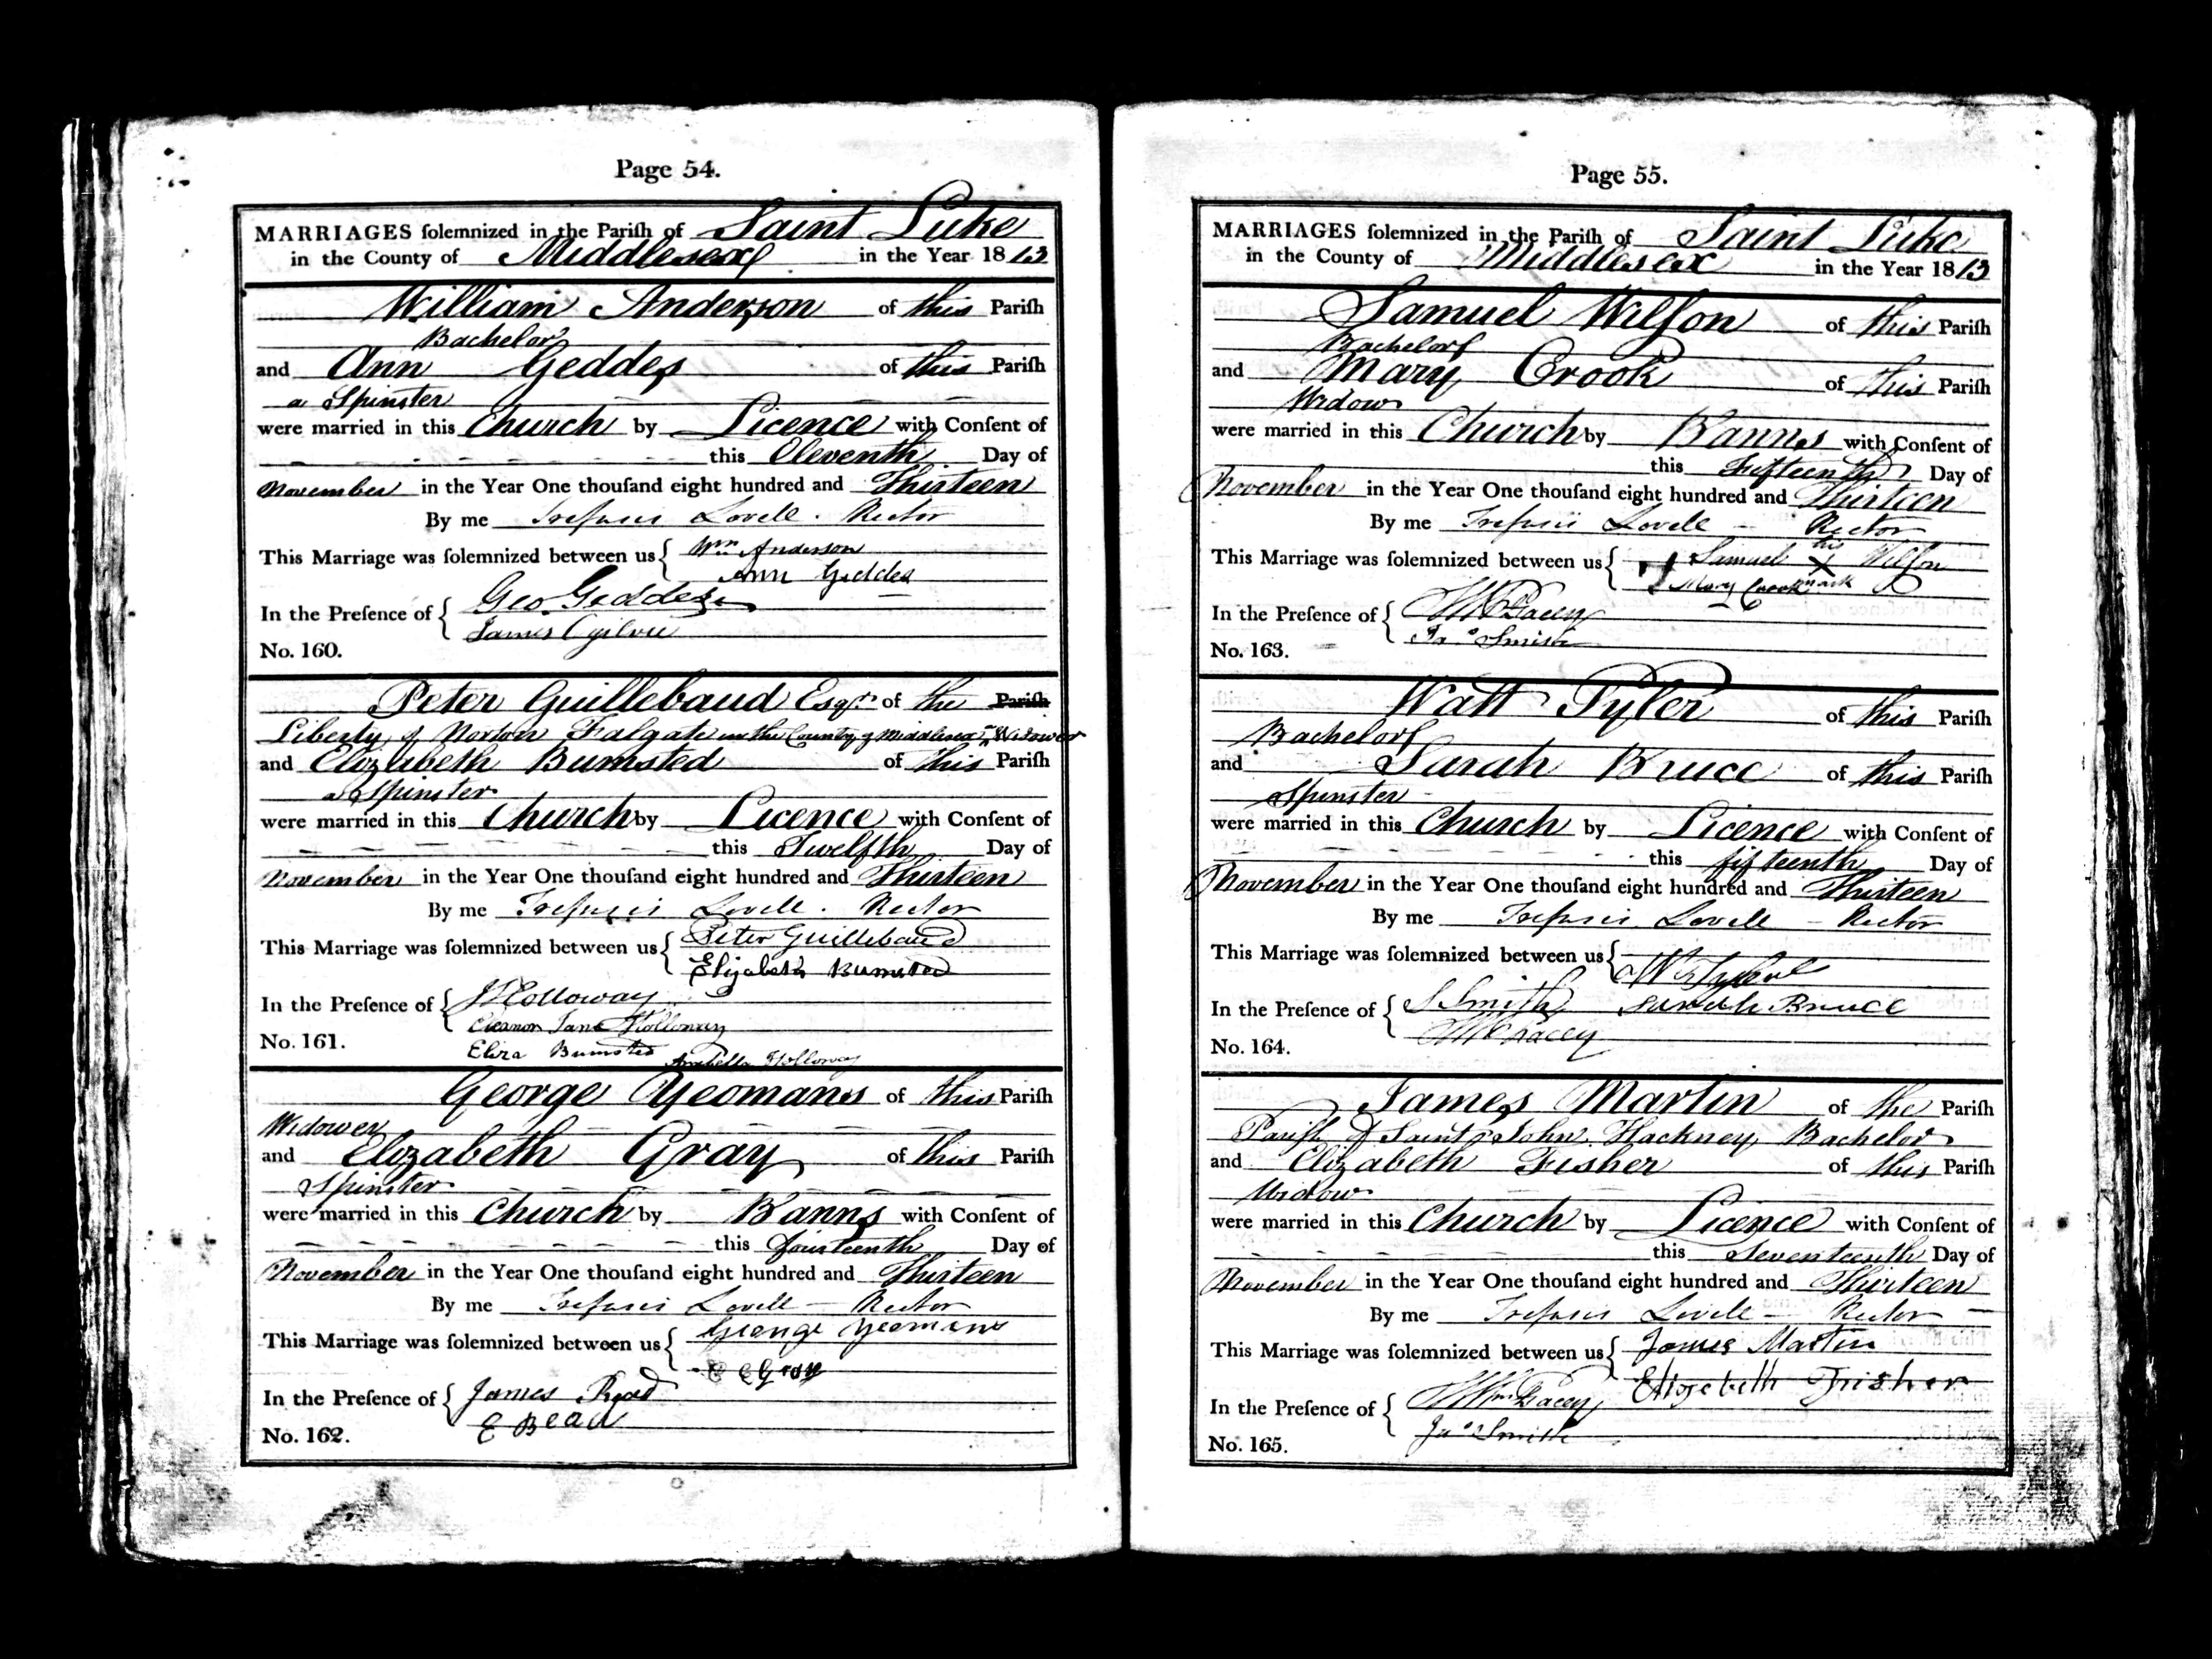 Page 54.
MARRIAGES ſolemnized in the Pariſh of Saint Luke
in the County of Middlesex in the Year 1813
William Anderson of this Pariſh
Bachelor
and Ann Geddes of this Pariſh
a Spinster
were married in this Church by Licence with Conſent of
this Eleventh Day of
November in the Year One thouſand eight hundred and Thirteen
By me Trefusis Lovell. Rector
This Marriage was ſolemnized between us { Wm Anderson
Ann Geddes
In the Preſence of { Geo. Geddes
James Ogilvie
No. 160.
Peter Guillebaud Esqr. of the Pariſh
Liberty of Norton Falgate in the County of Middlesex Widower
and Elizabeth Bumsted of this Pariſh
a Spinster
were married in this Church by Licence with Conſent of
this Twelfth Day of
November in the Year One thouſand eight hundred and Thirteen
By me Trefusis Lovell. Rector
This Marriage was ſolemnized between us { Peter Guillebaud
Elizabeth Bumsted
In the Preſence of { Holloway
Eleanor Jane Holloway
No. 161.
Eliza Bumsted Arabella Holloway
George Yeomans of this Pariſh
Widower
and Elizabeth Gray of this Pariſh
Spinster
were married in this Church by Banns with Conſent of
this fourteenth Day of
November in the Year One thouſand eight hundred and Thirteen
By me Trefusis Lovell — Rector
This Marriage was ſolemnized between us { George Yeomans
E Gray
In the Preſence of { James Read
E Read
No. 162.
Page 55.
MARRIAGES ſolemnized in the Pariſh of Saint Luke
in the County of Middlesex in the Year 1813
Samuel Wilſon of this Pariſh
Bachelor
and Mary Crook of this Pariſh
Widow
were married in this Church by Banns with Conſent of
this Fifteenth Day of
November in the Year One thouſand eight hundred and Thirteen
By me Trefusis Lovell — Rector
This Marriage was ſolemnized between us { Samuel his X Wilſon
Mary Crook mark
In the Preſence of {
Jno Smith
No. 163.
Watt Tyler of this Pariſh
Bachelor
and Sarah Bruce of this Pariſh
Spinster
were married in this Church by Licence with Conſent of
this fifteenth Day of
November in the Year One thouſand eight hundred and Thirteen
By me Trefusis Lovell — Rector
This Marriage was ſolemnized between us { Tyler
In the Preſence of { Smith Sarah Bruce
No. 164.
James Martin of the Pariſh
Pariſh of Saint John Hackney Bachelor
and Elizabeth Fisher of this Pariſh
Widow
were married in this Church by Licence with Conſent of
this Seventeenth Day of
November in the Year One thouſand eight hundred and Thirteen
By me Trefusis Lovell — Rector
This Marriage was ſolemnized between us { James Martin
Elizebeth Frisher
In the Preſence of {
Jno Smith
No. 165.